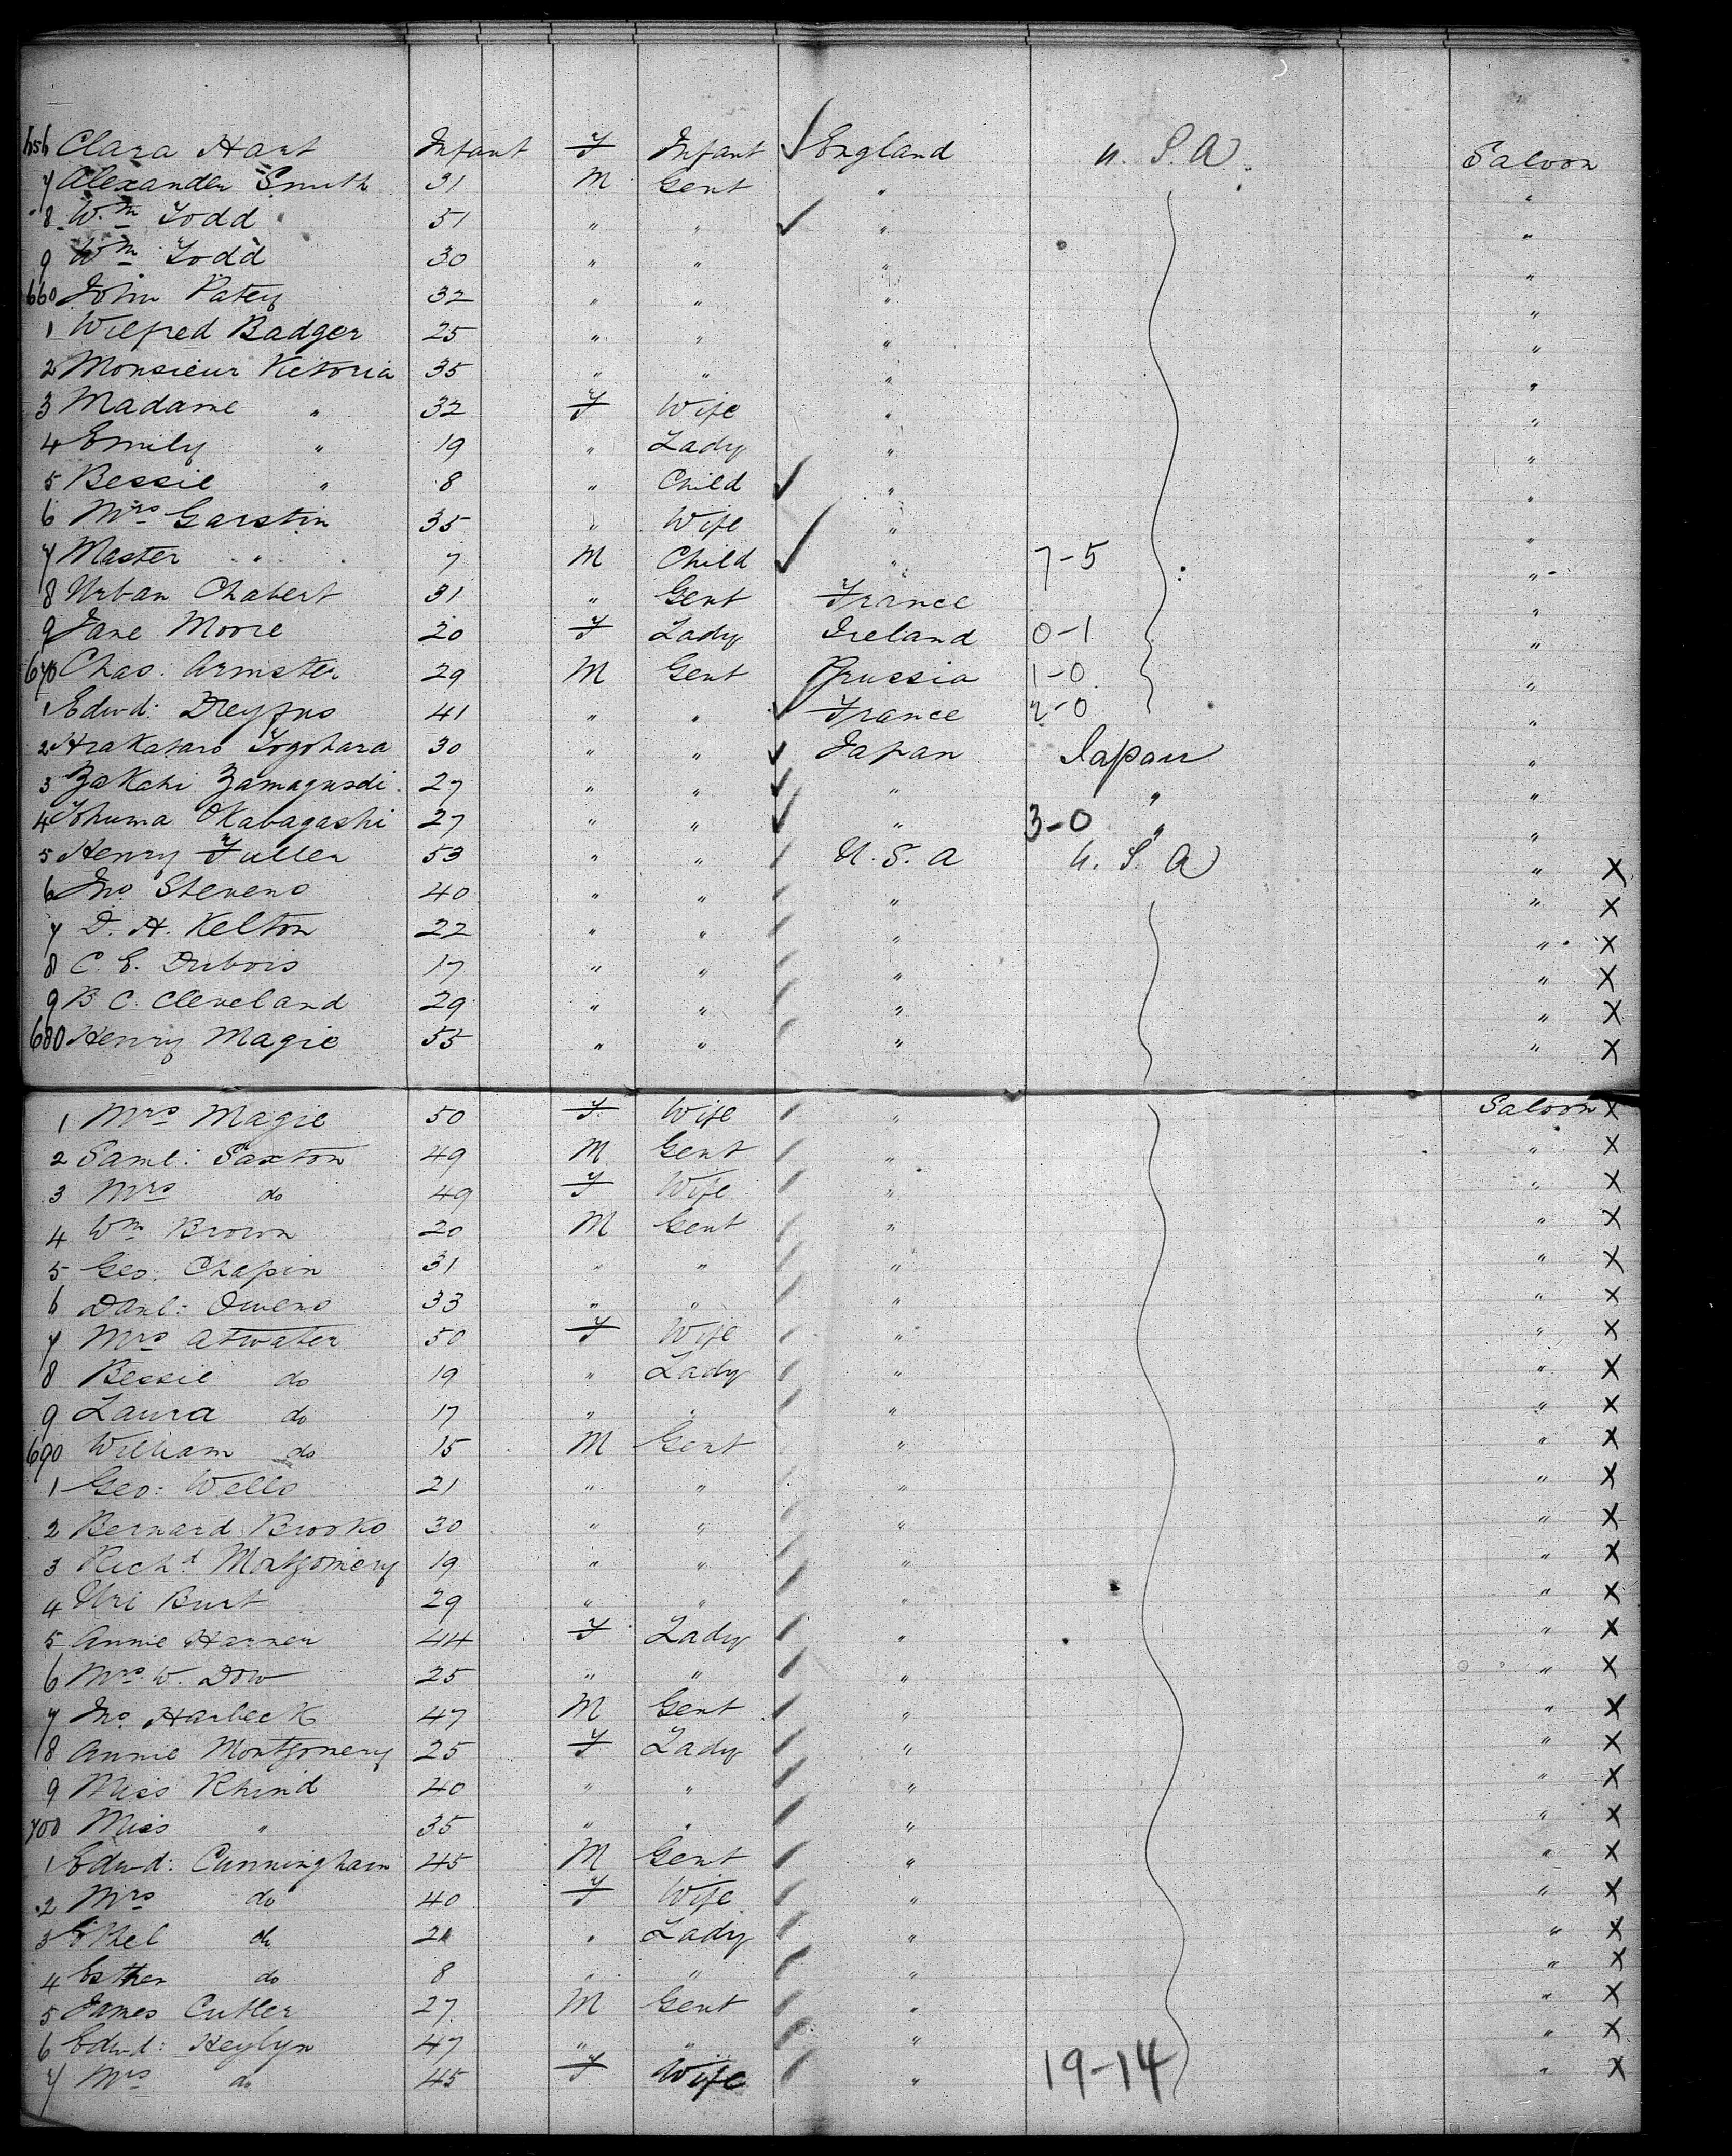 656 Clara Hart Infant F Infant England U. S. A Saloon
7 Alexander Smith 31 M Gent " "
8 Wm Todd 51 " " " "
9 Wm Todd 30 " " " "
660 John Patey 32 " " " "
1 Wilfred Badger 25 " " " "
2 Monsieur Victoria 35 " " " "
3 Madame " 32 F Wife " "
4 Emily " 19 " Lady " "
5 Bessie " 8 " Child " "
6 Mrs Garstin 35 " Wife " "
7 Master " 7 M Child " 7-5 "
8 Urban Chabert 31 " Gent France "
9 Jane Moore 20 F Lady Ireland 0-1 "
670 Chas: Armster 29 M Gent Prussia 1-0 "
1 Edwd: Dreyfus 41 " " France 2-0 "
2 Hrakataro Togohara 30 " " Japan Japan "
3 Zakahi Zamagusdi 27 " " " " "
4 Okabagashi 27 " " " 3-0 " "
5 Henry Fuller 53 " " U. S. A U. S. A " X
6 Jno. Stevens 40 " " " " X
7 D. H. Kelton 22 " " " " X
8 C. E. Dubois 17 " " " " X
9 B C. Cleveland 29 " " " " X
680 Henry Magie 55 " " " " X
1 Mrs Magie 50 F Wife " Saloon X
2 Saml: Saxton 49 M Gent " " X
3 Mrs do 49 F Wife " " X
4 Wm Brown 20 M Gent " " X
5 Geo: Chapin 31 " " " " X
6 Danl: Owens 33 " " " " X
7 Mrs Atwater 50 F Wife " " X
8 Bessie do 19 " Lady " " X
9 Laura do 17 " " " " X
690 William do 15 M Gent " " X
1 Geo: Wells 21 " " " " X
2 Bernard Brooks 30 " " " " X
3 Richd Montgomery 19 " " " " X
4 Uri Burt 29 " " " " X
5 Annie Harner 44 F Lady " " X
6 Mrs. W. Dow 25 " " " " X
7 Jno. Harbeck 47 M Gent " " X
8 Annie Montgomery 25 F Lady " " X
9 Miss Rhind 40 " " " " X
700 Miss " 35 " " " " X
1 Edwd: Cunningham 45 M Gent " " X
2 Mrs do 40 F Wife " " X
3 Ethel do " Lady " " X
4 Esther do 8 " " " " X
5 James Cutler 27 M Gent " " X
6 Edwd: Heylyn 47 " " " " X
7 Mrs do 45 F Wife " 19-14 " X